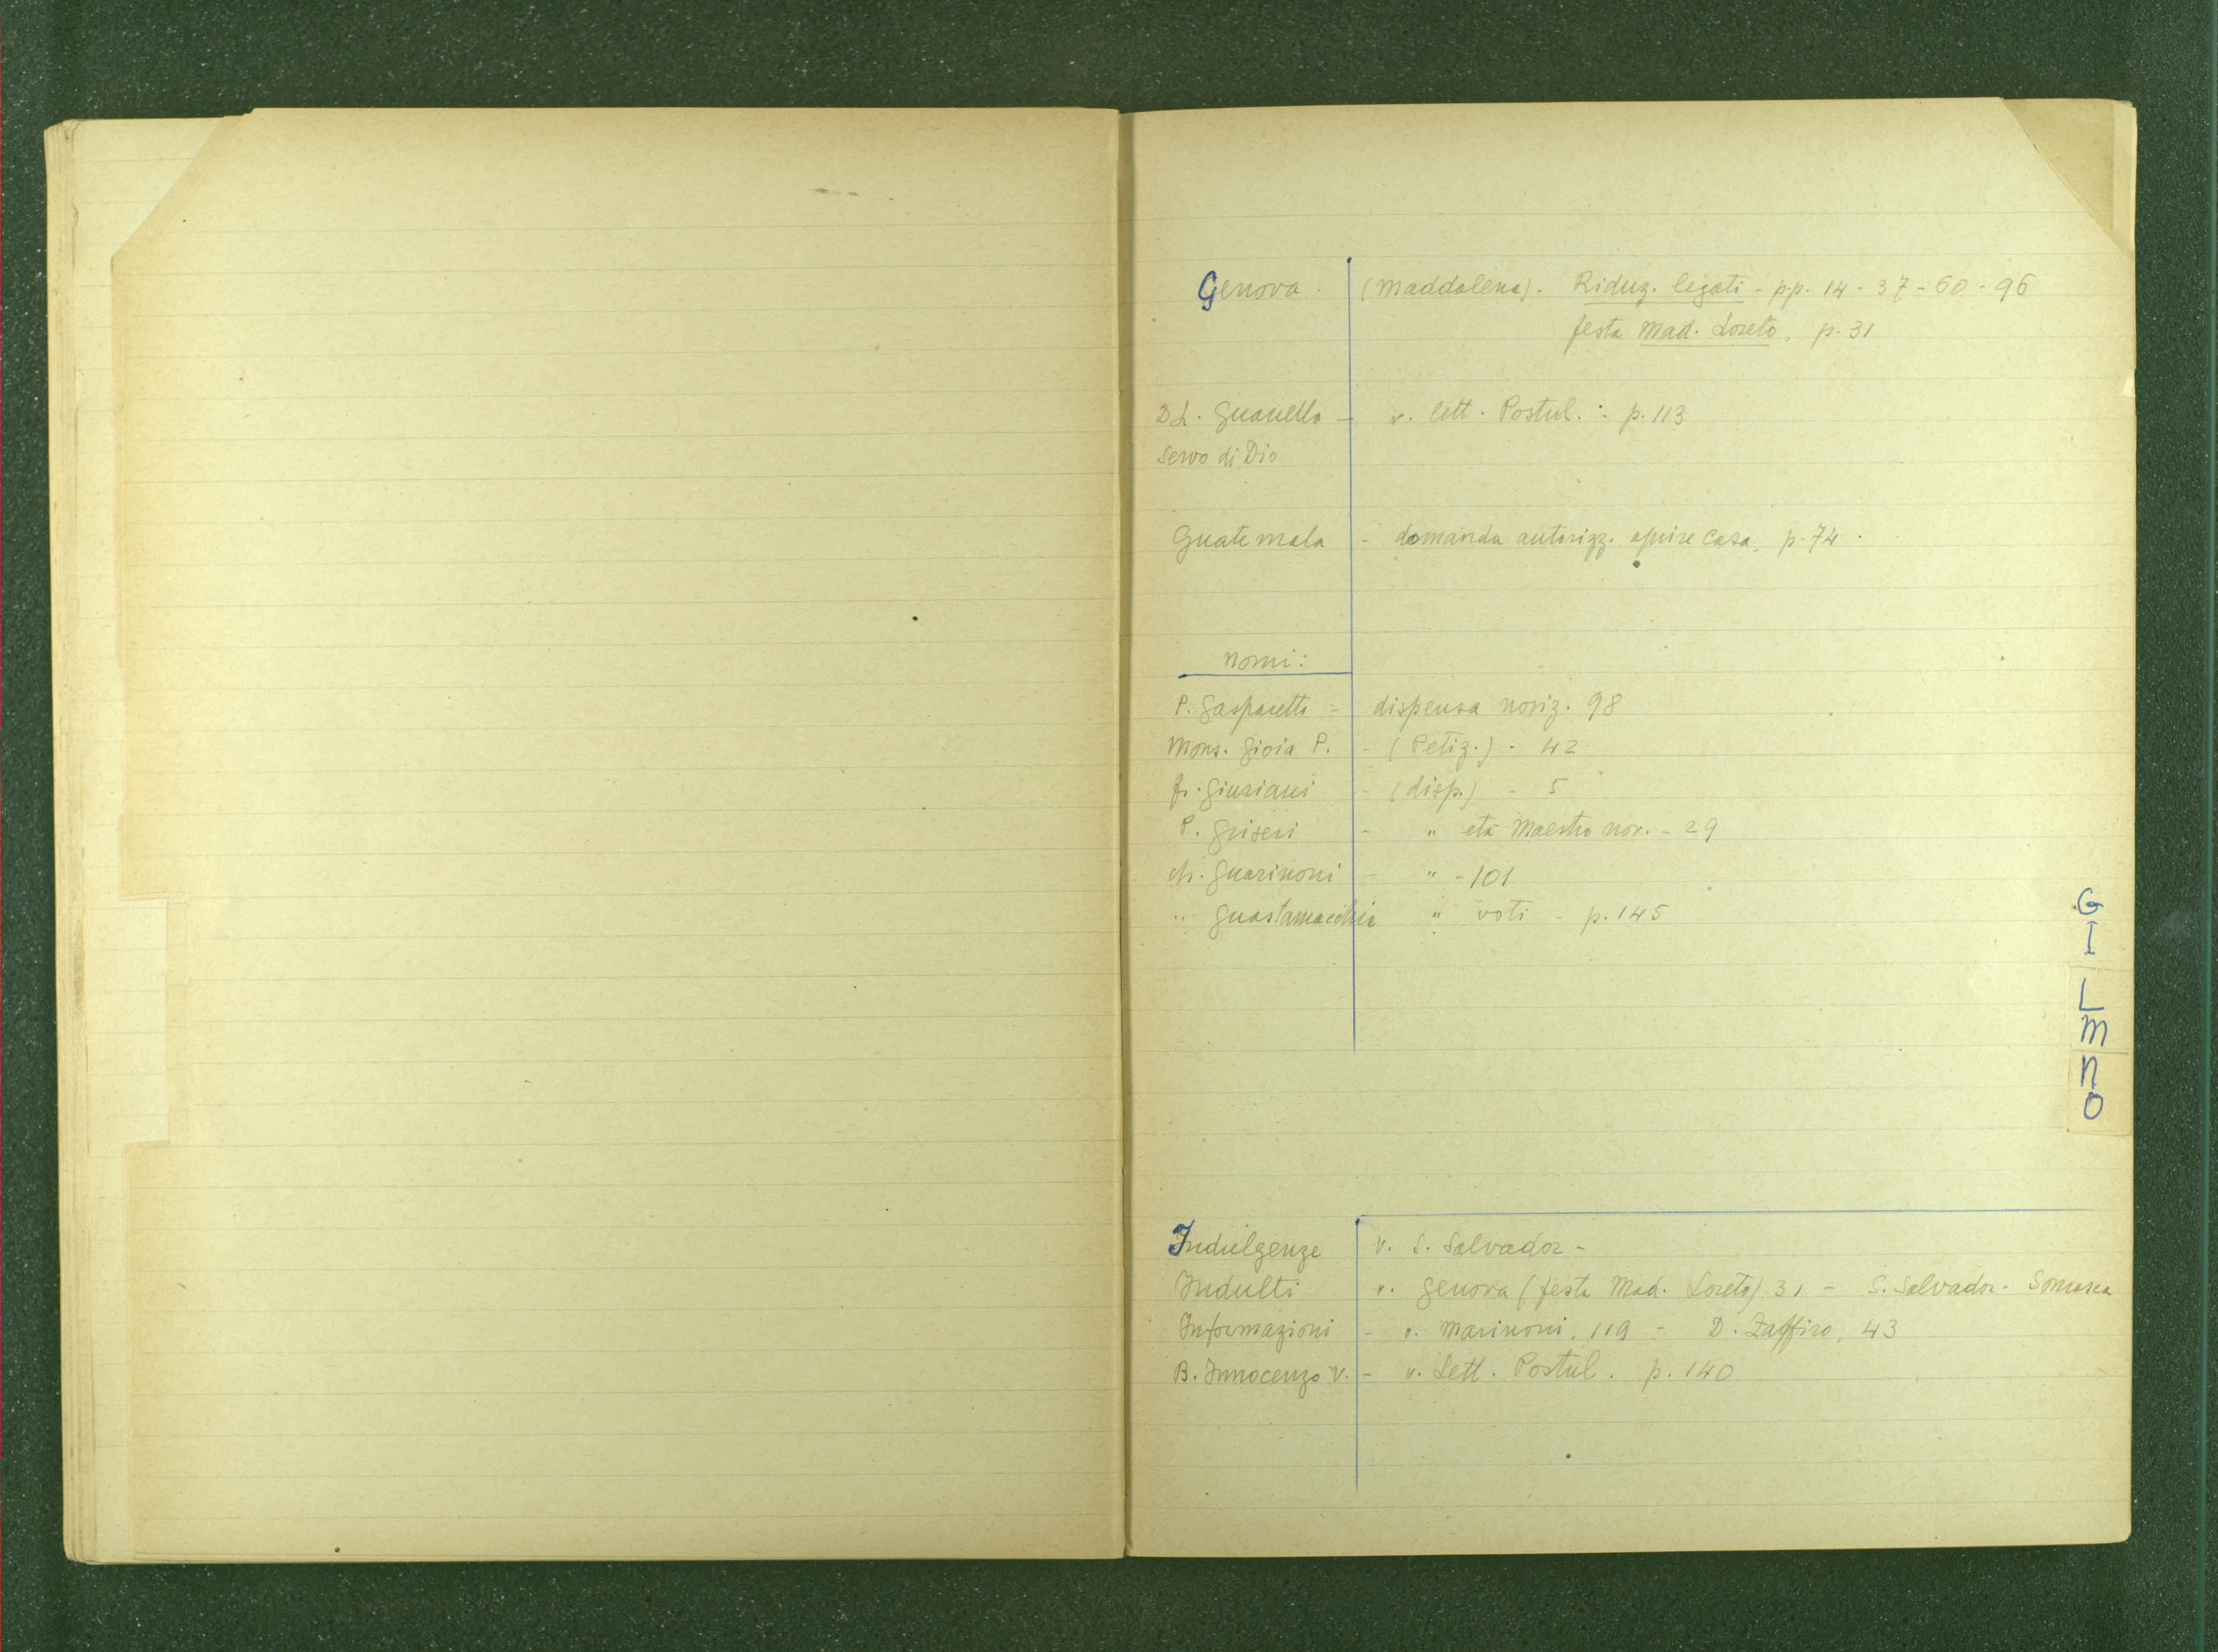 Genova - (Maddalena) - Riduz. legati - pp. 14 - 37 - 60 - 96
festa Mad. Loreto, p. 31
D. L. Guanella - v. lett. Postul. : p. 113
Servo di Dio
Guatemala - domanda autorizz. aprire Casa, p. 74.
nomi:
P. Gasparetto - dispensa noviz. 98
Mons. Gioia P. - (Petiz.) - 42
fr. Giusiani - (disp.) - 5
P. Griseri - " età Maestro nov. - 29
ch. Guarinoni - " - 101
" Guastamacchia " voti - p. 145
G
I
L
M
N
O
Indulgenze v. S. Salvador -
Indulti v. Genova (festa Mad. Loreto) 31 - S. Salvador - Somasca
Informazioni - v. Marinoni, 119 - D. Zaffiro, 43
B. Innocenzo V. - v. Lett. Postul. p. 140